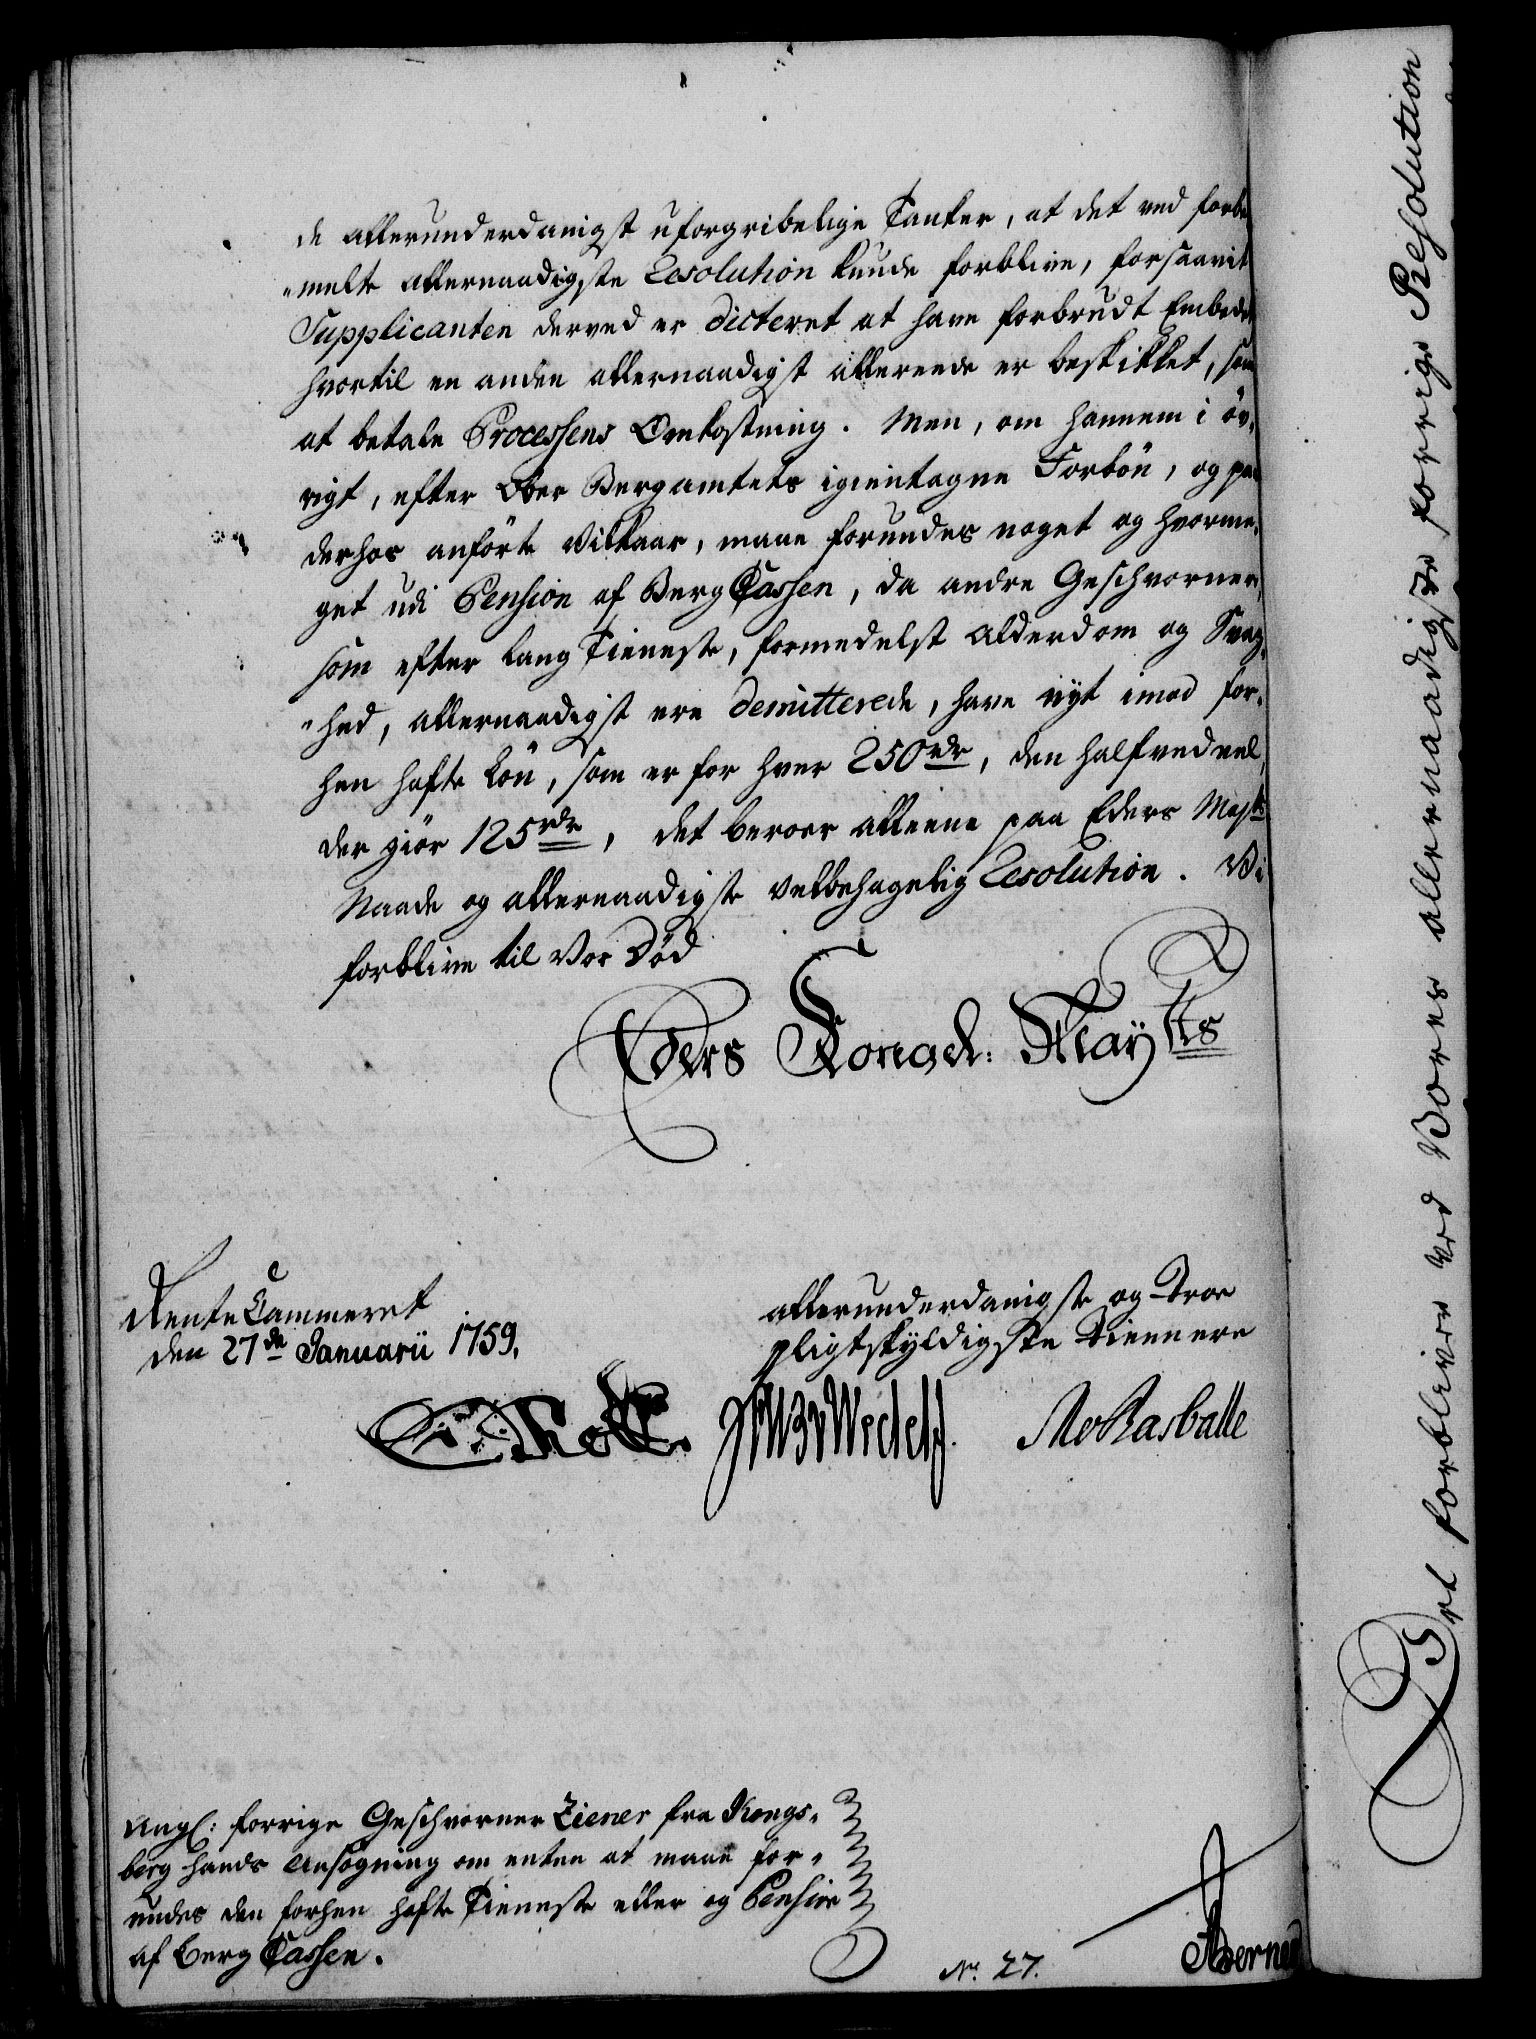 de allerunderdanigst uforgribelige Tanker, at det ved forbe
"melte allernaadigste Resolution kunde forblive, forsaavit
Supplicanten derved er dicteret at have forbrudt Embedet
hvortil en anden allernaadigst allereede er beskikket, som
at betale Processens Omkostning. Men, om hannem i øv,
rigt, efter Ober Bergamtets igientagne Forbøn, og paa
derhos anførte Vilkaar, maae forundes noget og hvorme,
get udi Pension af Berg Cassen, da andre Geschvorner,
som efter lang Tieneste, formedelst Alderdom og Svag,
"hed, allernaadigst ere demitterede, have nÿt imod for,
hen hafte Løn, som er for hver 250 rdr, den halfve deel,
der giør 125 rdr, det beroer alleene paa Eders Maÿts
Naade og allernaadigste velbehagelig Resolution. Vi
forblive til Vor Død
Eders Kongel: Maÿtts
Rente Cammeret
den 27de Januarii 1759.
allerunderdanigste og Troe
pligtskyldigste Tiennere
Wedel
Rasballe
Angl: forrige Geschvorner Ziener fra Kongs,
berg hands Ansøgning om enten at maae for,
undes den forhen hafte Tieneste eller og Pension
af Berg Cassen.
No. 27.
Det forbliver ved Vores allernaadigste forrige Resolution